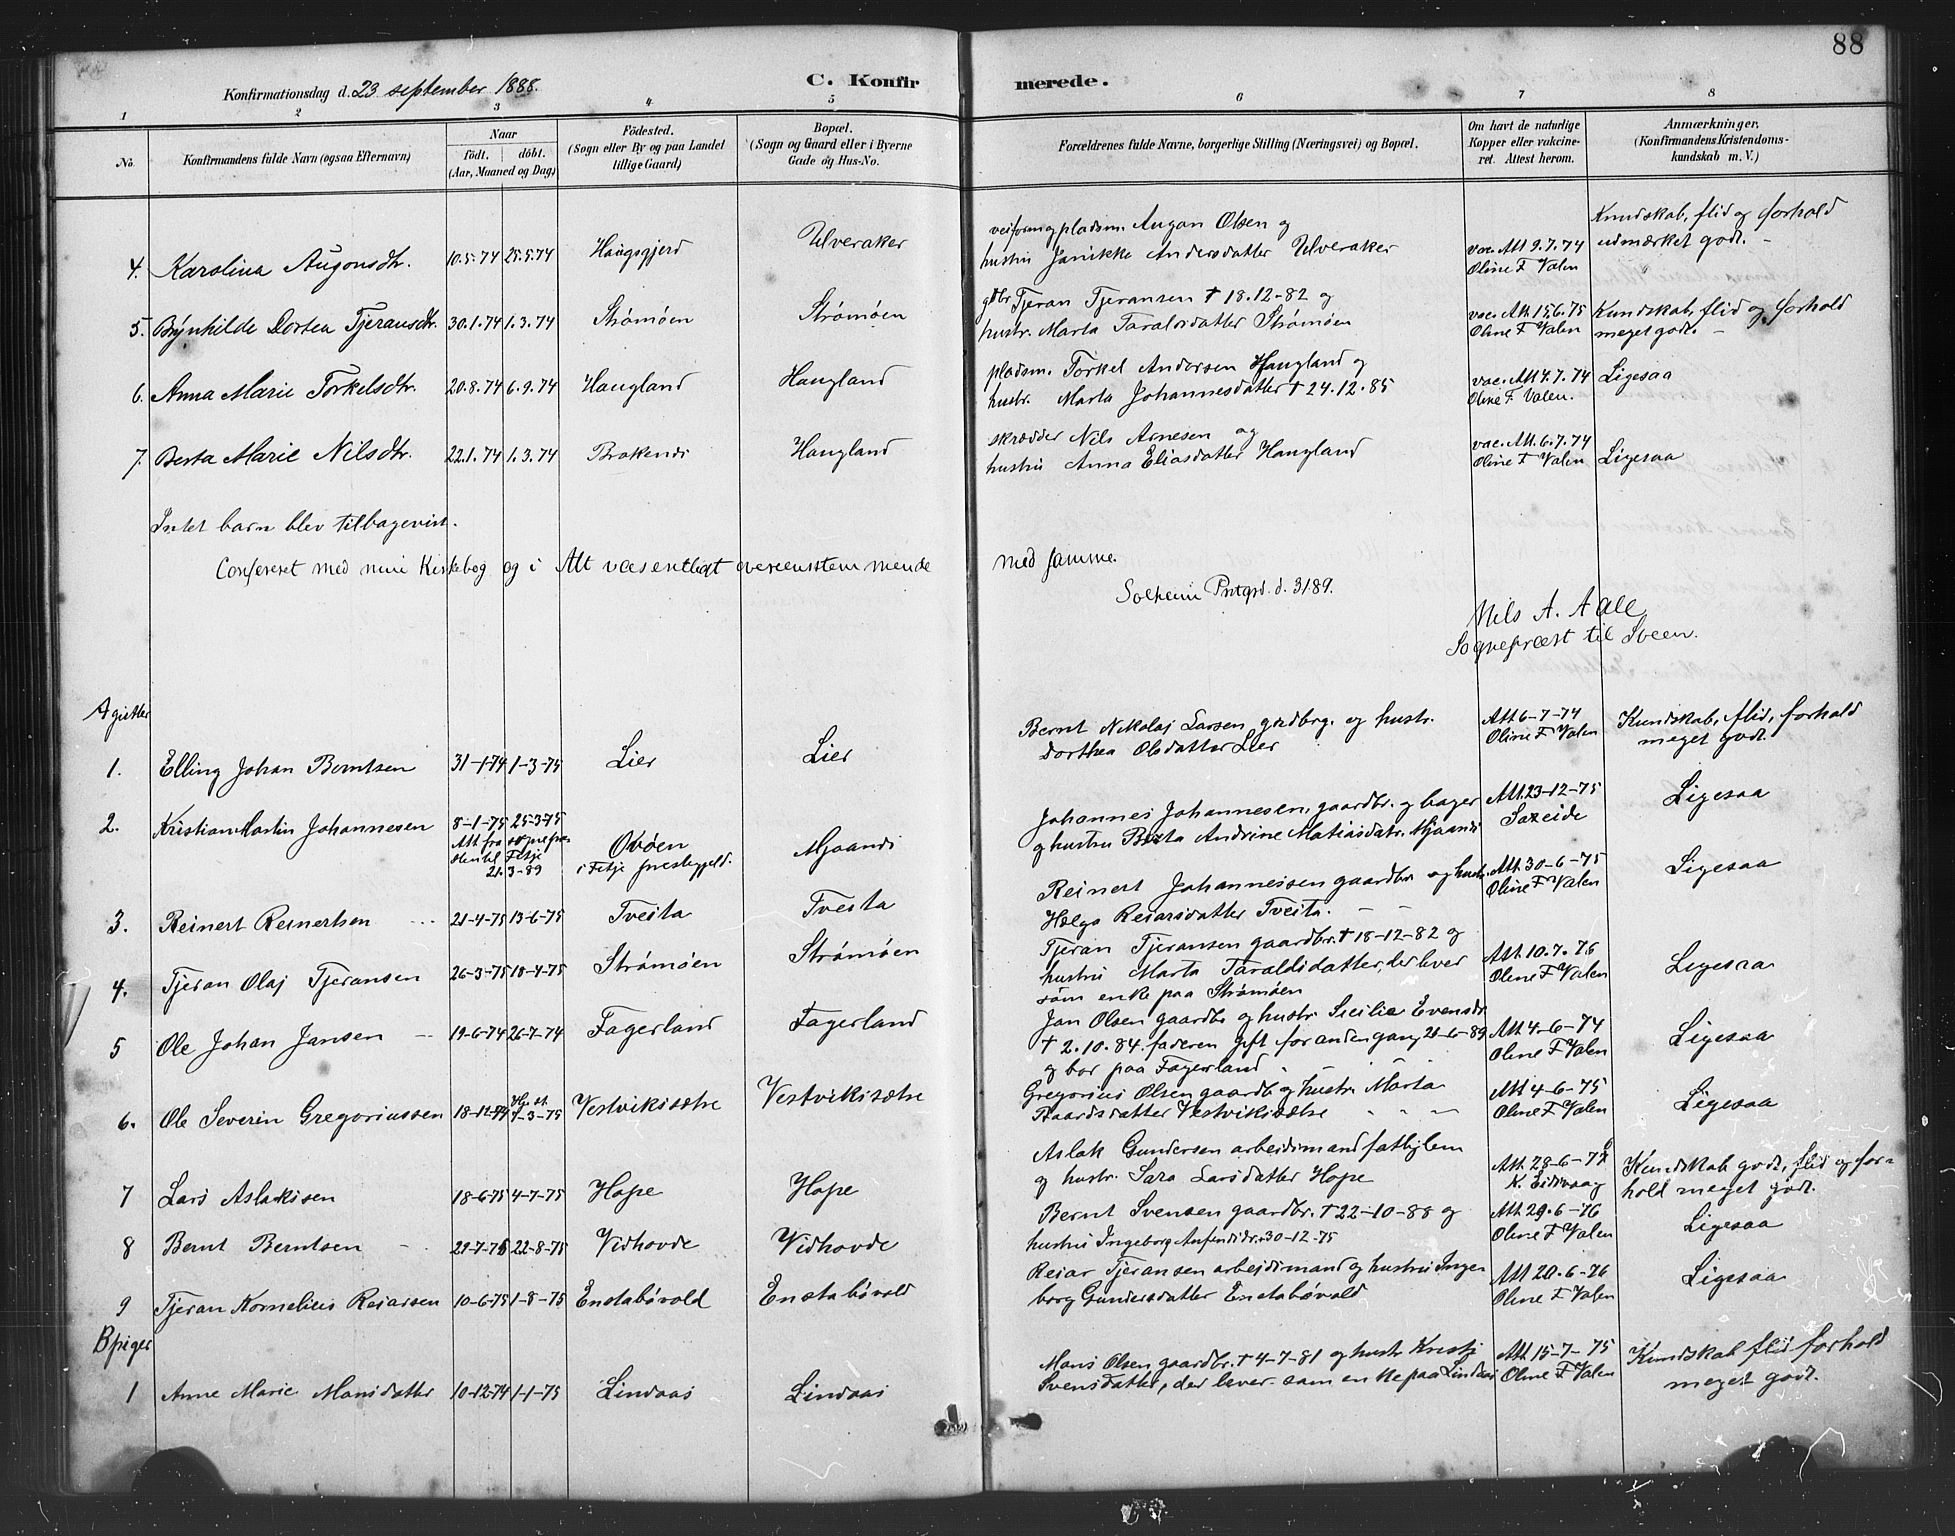 88
Konfirmationsdag d. 23 september 1888.
C. Konfirmerede.
1 2 3 4 5 6 7 8
No.
Konfirmandens fulde Navn (ogsaa Efternavn)
Naar
födt. döbt.
(Aar, Maaned og Dag)
Födested.
(Sogn eller By og paa Landet
tillige Gaard)
Bopæl.
(Sogn og Gaard eller i Byerne
Gade og Hus-No.
Forældrenes fulde Navne, borgerlige Stilling (Næringsvei) og Bopæl.
Om havt de naturlige
Kopper eller vakcine-
ret. Attest herom.
Anmærkninger,
(Konfirmandens Kristendoms-
kundskab m. V.)
4. Karolina Augonsdtr. 10.5.74 25.5.74 Haugsgjerd Ulveraker
pladsm. Augon Olsen og
hustru Janikke Andersdatter Ulveraker
vac. Att 9.7.74
Oline F Valen
Kundskab, flid og forhold
udmærket godt. –
5. Brynhilde Dortea Tjeransdtr. 30.1.74 1.3.74 Strømøen Strømøen
gdbr Tjeran Tjeransen † 18.12-82 og
hustr. Marta Taraldsdatter Strømøen
vac. Att. 15.6.75
Oline F Valen
Kundskab, flid og forhold
meget godt. –
6. Anna Marie Torkelsdtr. 20.8.74 6.9.74 Haugland Haugland
pladsm. Torkel Andersen Haugland og
hustr. Marta Johannesdatter † 24.12.85
vac. Att 4.7.74
Oline F Valen.
Ligesaa
7. Berta Marie Nilsdtr. 22.1.74 1.3.74 Haugland
skrædder Nils Arnesen og
hustru Anna Eliasdatter Haugland
vac. Att. 6.7.74
Oline F Valen
Ligesaa
Intet barn blev tilbagevist.
Confereret med min Kirkebog og i Alt væsentligt overeensstemmende med samme.
Solheim Prstgrd. d. 3/1 89.
Nils A. Aall
Sognepræst til Sveen.
A gutter
1. Elling Johan Berntsen 31-1-74 1-3-75 Lier Lier
Bernt Nikolaj Larsen gardbrg. og hustr.
Dorthea Olsdatter Lier
Att 6-7-74
Oline F Valen
Kundskab, flid, forhold
meget godt.
2. Kristian Martin Johannesen 8-1-75 25-3-75
Att fra
21.3-89
i Fitje prestegjeld. Mjaanes
Johannes Johannesen, gaardbr. og bager
og hustru Berta Andrine Matiasdatr. Mjaanes
Att. 23-12-75
Saxeide
Ligesaa
3. Reinert Reinertsen 21-4-75 13-6-75 Tveita Tveita
Reinert Johannesen gaardbr og hustr.
Helga Reiarsdatter Tveita. – –
Att. 30-6-75
Oline F Valen
Ligesaa
4. Tjeran Olaj Tjeransen 26-3-75 18-4-75 Strømøen Strømøen
Tjeran Tjeransen gaardbr. † 18-12-82 og
hustru Marta Taraldsdatter, der lever
som enke paa Strømøen
Att 10.7.76
Oline F Valen
Ligesaa
5 Ole Johan Jansen 19-6-74 26-7-74 Fagerland Fagerland
Jan Olsen gaardbr og hustr. Sicilie Evensdr
† 2.10.84. faderen gift for anden gang 21-6-89
og bor paa Fagerland
Att. 4-6-74
Oline F Valen
Ligesaa
6. Ole Severin Gregoriussen 18-12-74 7-3-75 Vestvikisætre Vestvikisætre
Gregorius Olsen gaardb og hustr. Marta
Baardsdatter Vestvikisætre
Att. 4-6-75
Oline F Valen
Ligesaa
7 Lars Aslaksen 18-6-75 4-7-75 Hope Hope
Aslak Gundersen arbeidsmand fattiglem
og hustr. Sara Larsdatter Hope
Att. 28-6-77
K. Eidesvaag
Kundskab godt, flid og for-
hold meget godt.
8 Bernt Berntsen 29-7-75 22-8-75 Vidhovde Vidhovde
Bernt Svensen gaardbr. † 22-10-88 og
hustru Ingeborg Anfindsdr. 30-12-75
Att. 29.6-76
Oline F Valen
Ligesaa
9 Tjeran Kornelius Reiarsen 10-6-75 1-8-75 Enstabøvold Enstabøvold
Reiar Tjeransen arbeidsmand og hustru Inge
borg Gundersdatter Enstabøvold
Att 20.6-76
Oline F Valen
Ligesaa
B piger
1 Anne Marie Monsdatter 10-12-74 1-1-75 Lindaas Lindaas
Mons Olsen gaardbr. † 4-7-81 og hustr Kristi
Svensdatter, der lever som enke paa Lindaas
Att. 15-7-75
Oline F Valen
Kundskab flid forhold
meget godt.